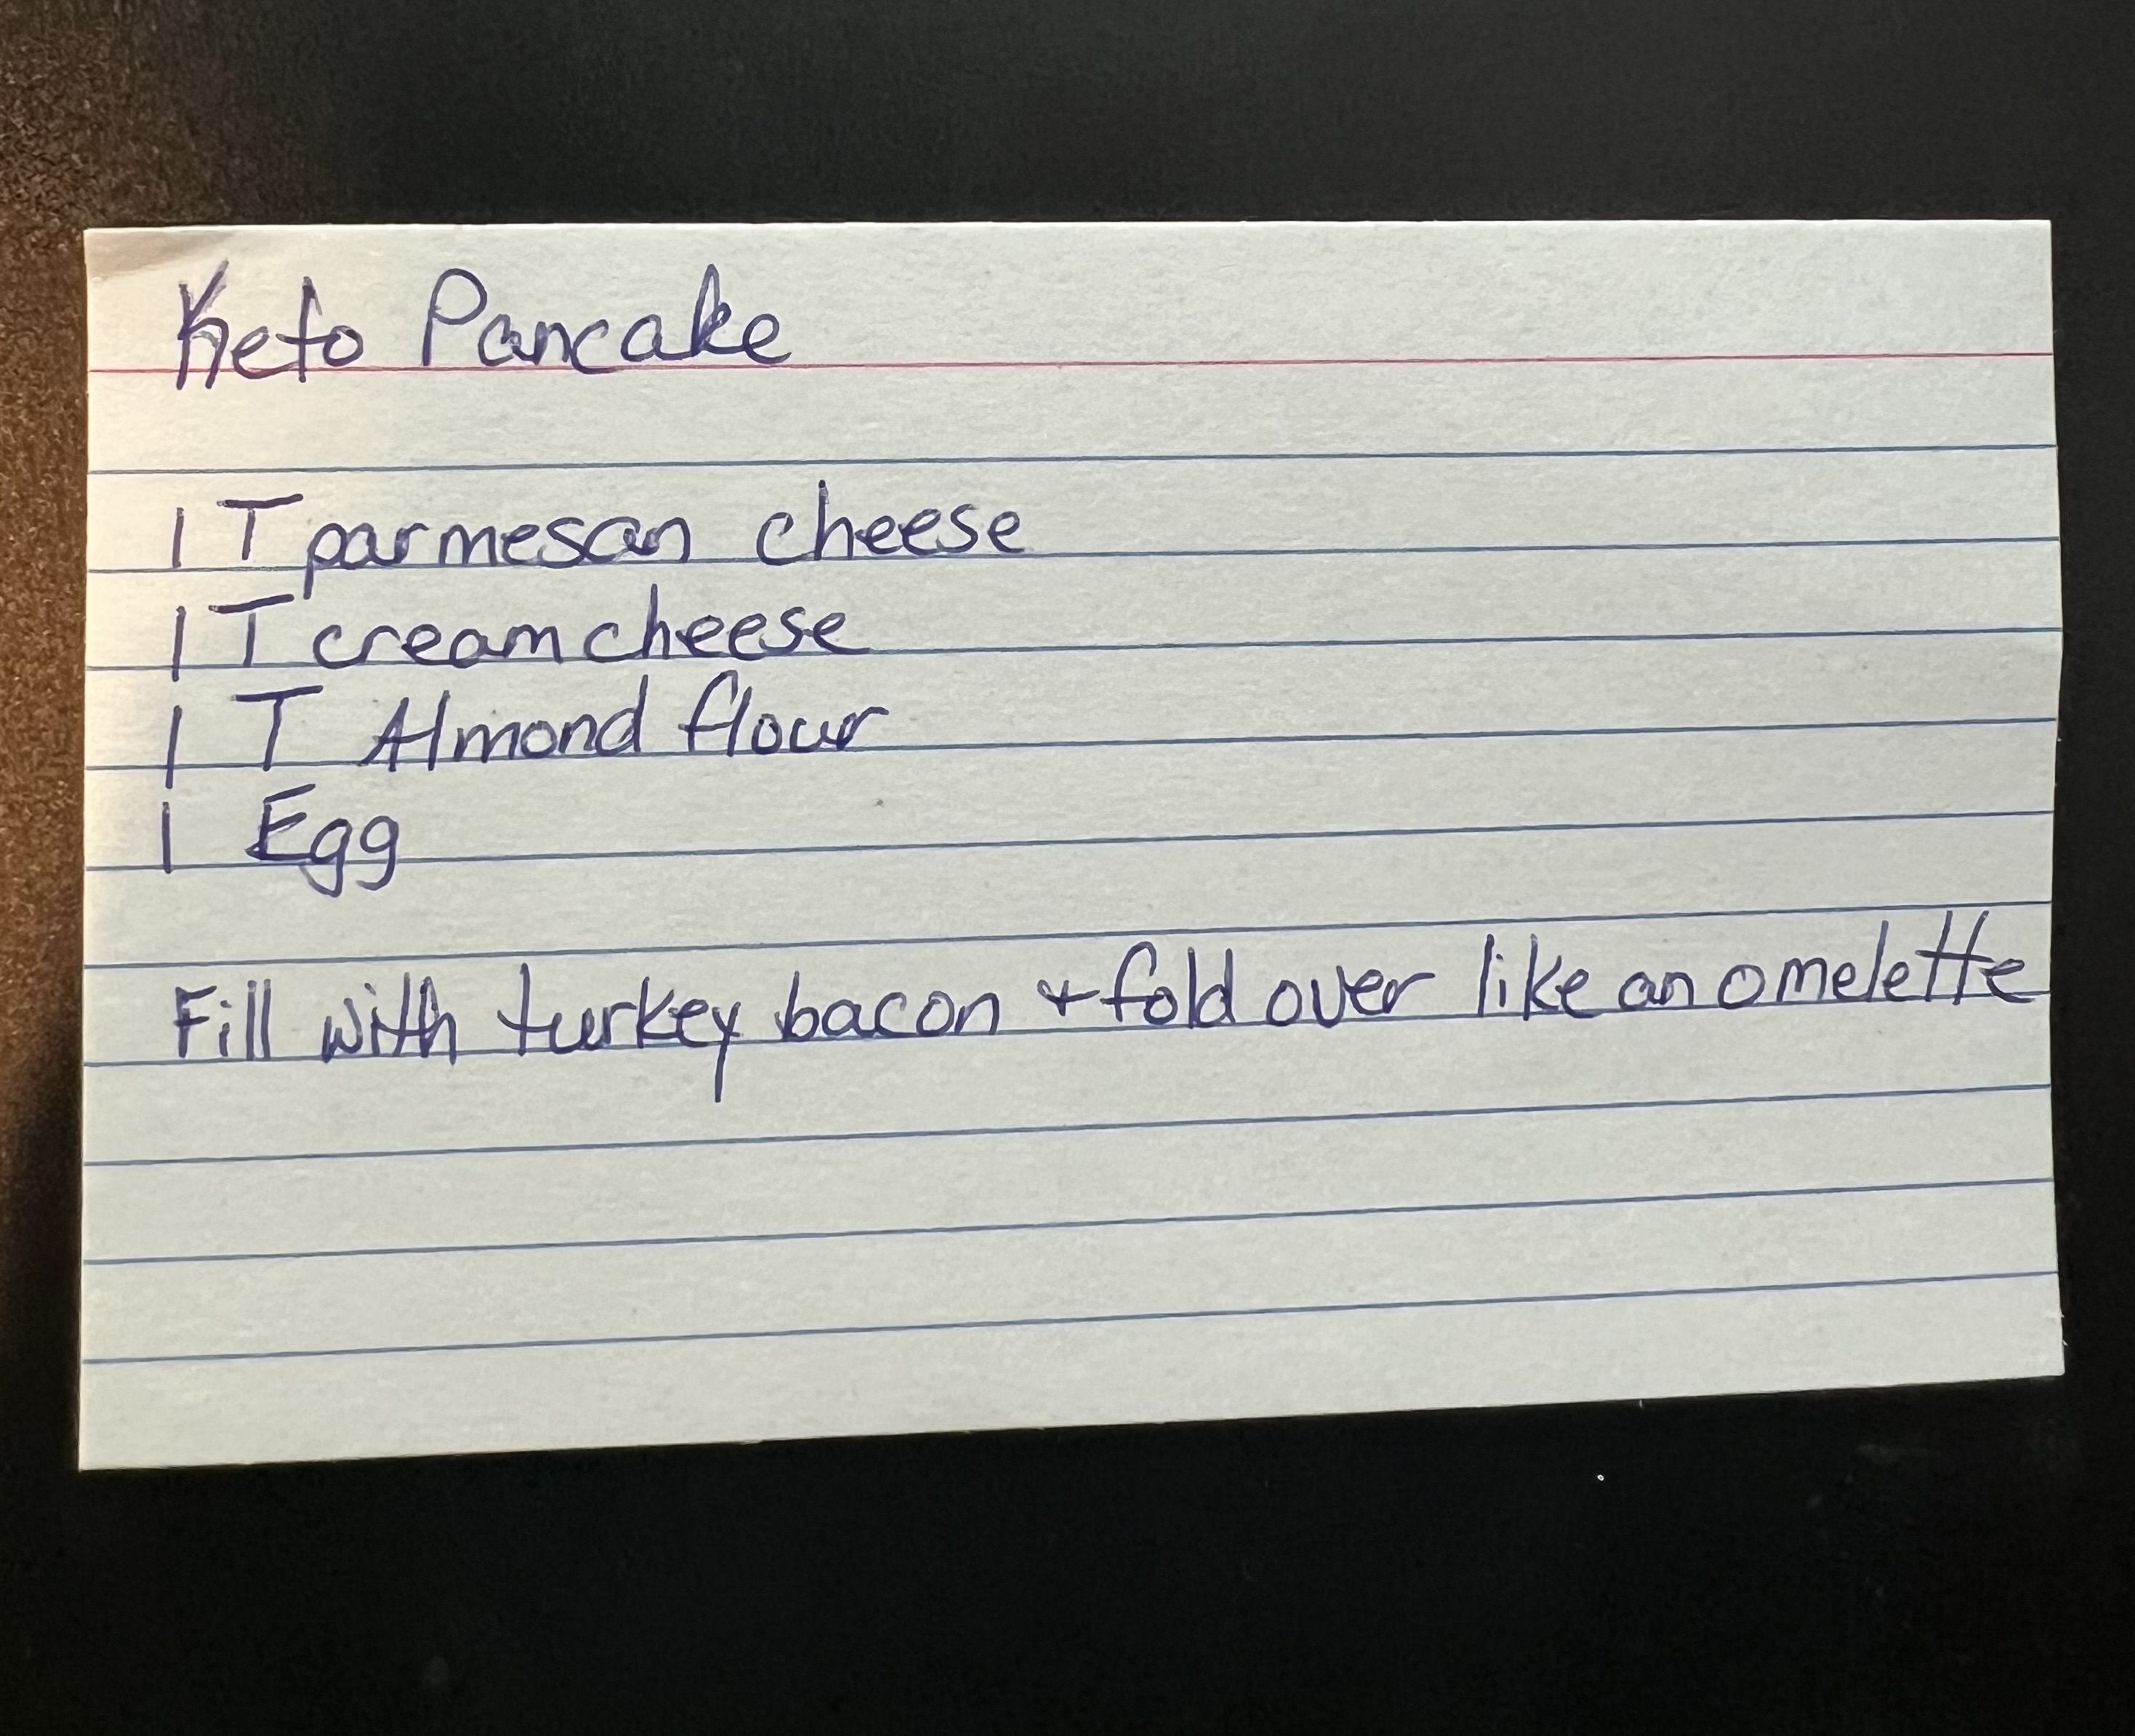 Keto Pancake
1 T parmesan cheese
1 T cream cheese
1 T Almond flour
1 Egg
Fill with turkey bacon + fold over like an omelette